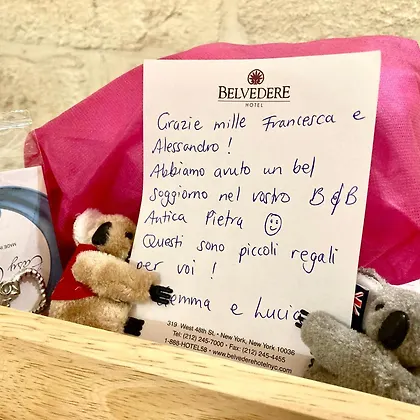 BELVEDERE
HOTEL
Grazie mille Francesca e
Alessandro!
Abbiamo avuto un bel
soggiorno nel vostro B&B
Antica Pietra
Questi sono piccoli regali
per voi!
e Lucia
319 West 48th St. • New York, New York 10036
Tel: (212) 245-7000 • Fax: (212) 245-4455
1-888-HOTEL58 • www.belvederehotelnyc.com